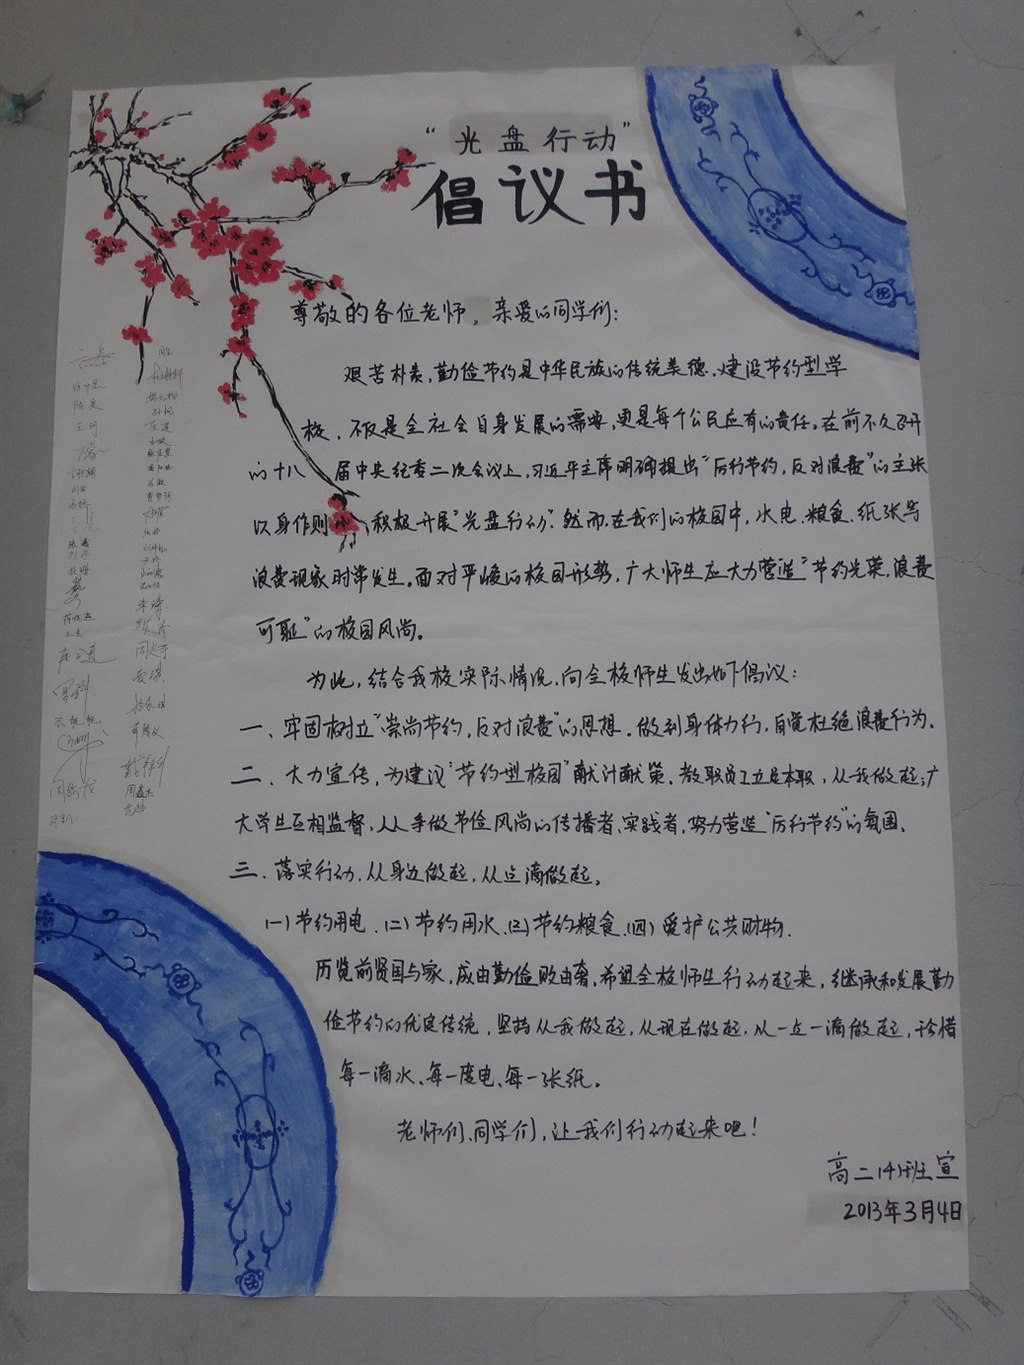 “光盘行动”
倡议书
尊敬的各位老师，亲爱的同学们：
艰苦朴素，勤俭节约是中华民族的传统美德，建设节约型学
校，不仅是全社会自身发展的需要，更是每个公民应有的责任。在前不久召开
的十八届中央纪委二次会议上，习近平主席明确提出“厉行节约，反对浪费”的主张
以身作则积极开展“光盘行动”。然而，在我们的校园中，水电、粮食、纸张等
浪费现象时常发生。面对严峻的校园形势，广大师生应大力营造“节约光荣，浪费
可耻”的校园风尚。
为此，结合我校实际情况，向全校师生发出如下倡议：
一、牢固树立“崇尚节约，反对浪费”的思想。做到身体力行，自觉杜绝浪费行为。
二、大力宣传，为建议“节约型校园”献计献策。教职员工立足本职，从我做起；广
大学生互相监督，人人争做节俭风尚的传播者、实践者，努力营造“厉行节约”的氛围。
三、落实行动，从身边做起，从点滴做起。
(一)节约用电、(二)节约用水、(三)节约粮食、(四)爱护公共财物.
历览前贤国与家，成由勤俭败由奢。希望全校师生行动起来，继承和发展勤
俭节约的优良传统，坚持从我做起，从现在做起，从一点一滴做起，珍惜
每一滴水、每一度电、每一张纸。
老师们、同学们，让我们行动起来吧！
高二(4)班宣
2013年3月4日